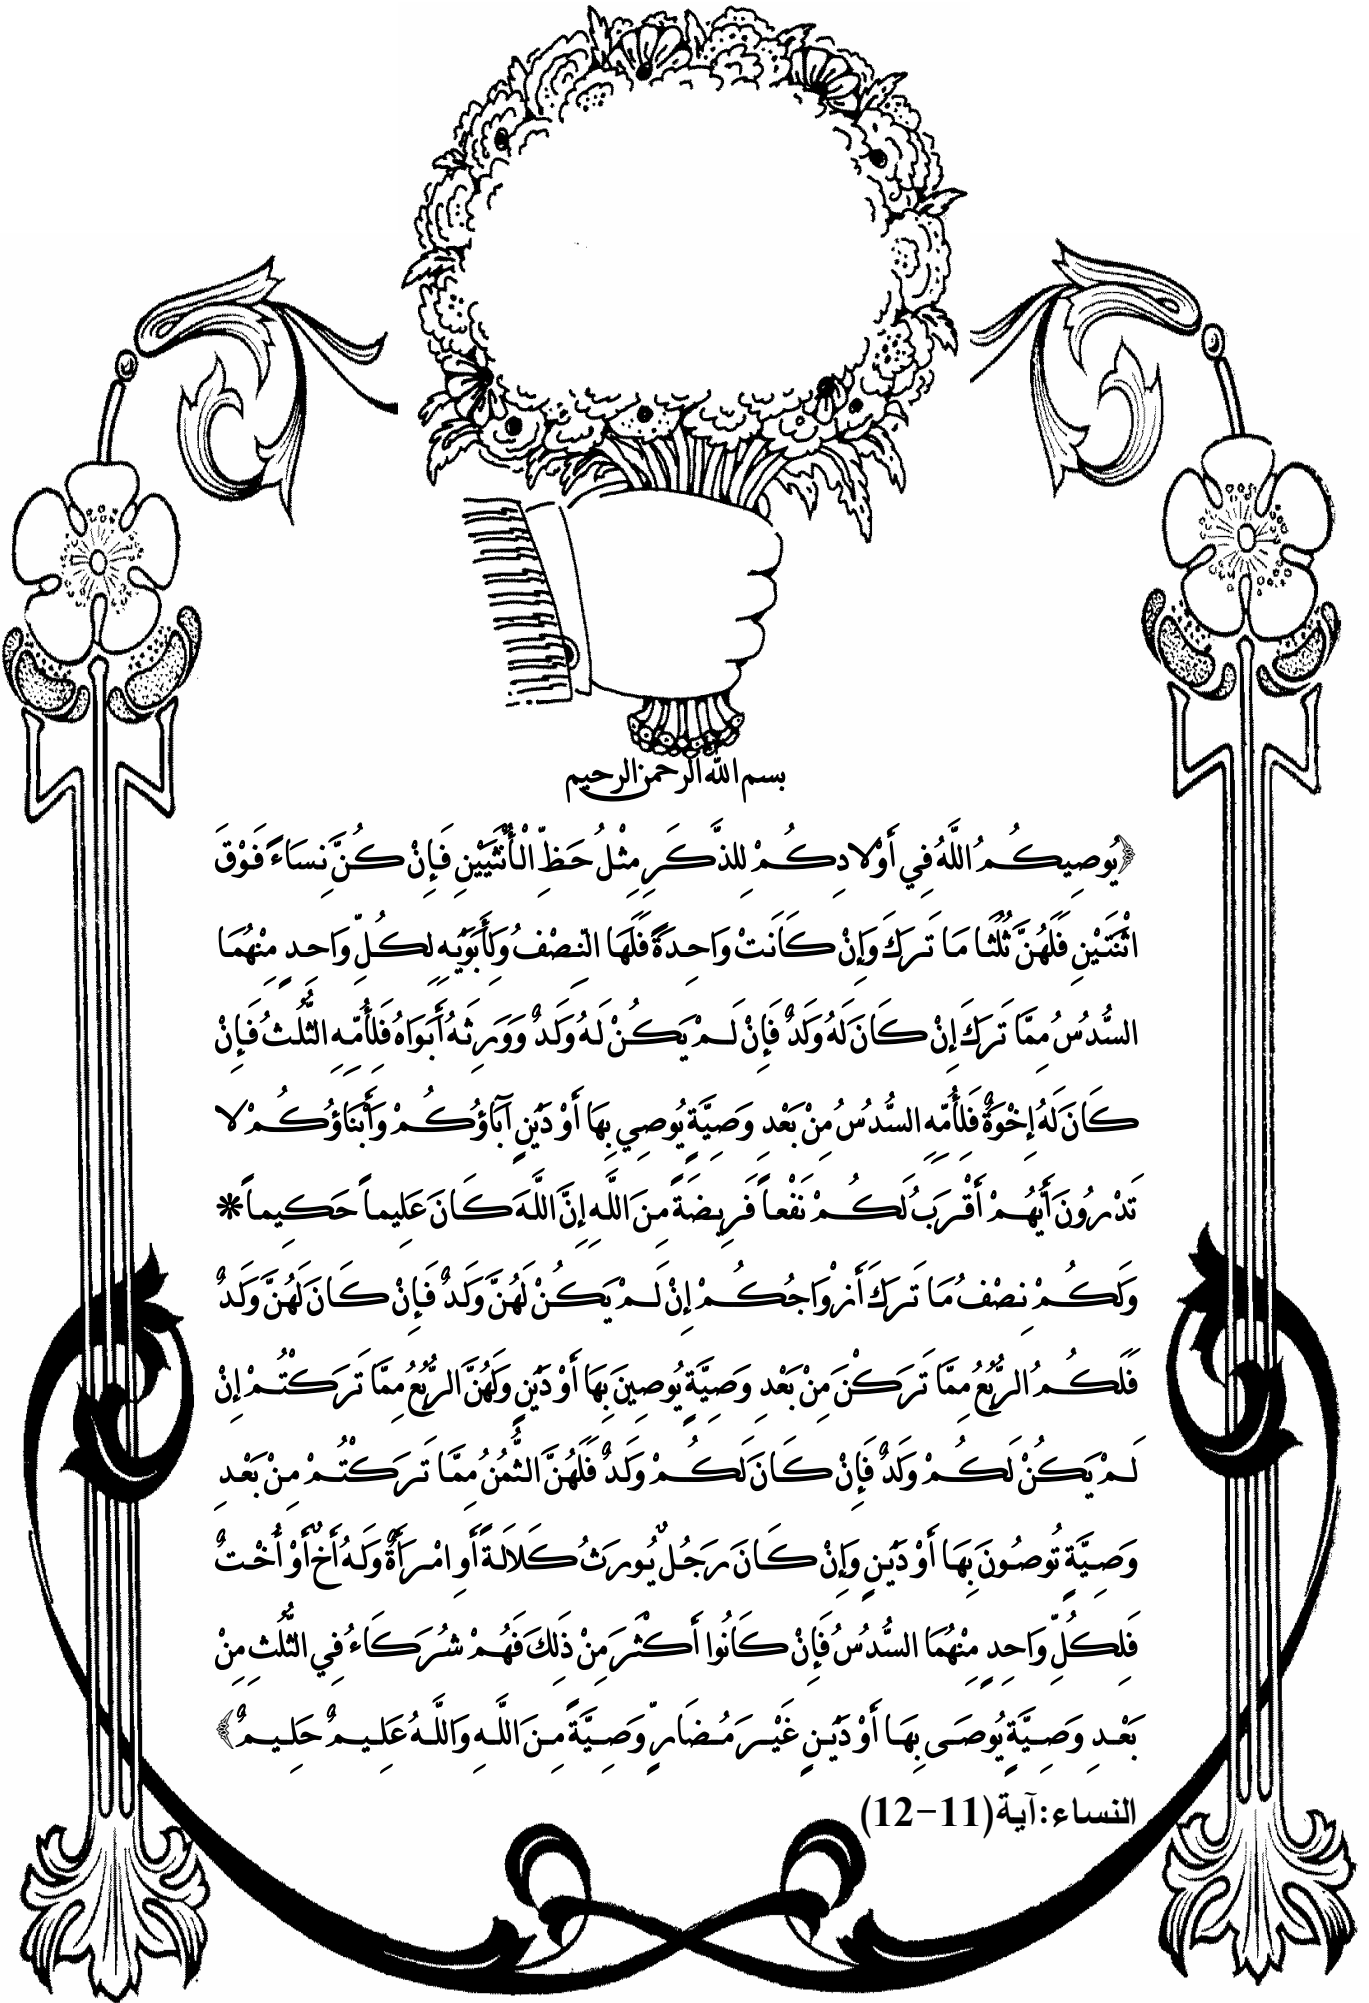 بسم الله الرحمن الرحيم
﴿يُوصِيكُمُ اللَّهُ فِي أَوْلادِكُمْ لِلذَّكَرِ مِثْلُ حَظِّ الْأُنْثَيَيْنِ فَإِنْ كُنَّ نِسَاءً فَوْقَ
اثْنَتَيْنِ فَلَهُنَّ ثُلُثَا مَا تَرَكَ وَإِنْ كَانَتْ وَاحِدَةً فَلَهَا النِّصْفُ وَلِأَبَوَيْهِ لِكُلِّ وَاحِدٍ مِنْهُمَا
السُّدُسُ مِمَّا تَرَكَ إِنْ كَانَ لَهُ وَلَدٌ فَإِنْ لَمْ يَكُنْ لَهُ وَلَدٌ وَوَرِثَهُ أَبَوَاهُ فَلِأُمِّهِ الثُّلُثُ فَإِنْ
كَانَ لَهُ إِخْوَةٌ فَلِأُمِّهِ السُّدُسُ مِنْ بَعْدِ وَصِيَّةٍ يُوصِي بِهَا أَوْ دَيْنٍ آبَاؤُكُمْ وَأَبْنَاؤُكُمْ لا
تَدْرُونَ أَيُّهُمْ أَقْرَبُ لَكُمْ نَفْعاً فَرِيضَةً مِنَ اللَّهِ إِنَّ اللَّهَ كَانَ عَلِيماً حَكِيماً *
وَلَكُمْ نِصْفُ مَا تَرَكَ أَزْوَاجُكُمْ إِنْ لَمْ يَكُنْ لَهُنَّ وَلَدٌ فَإِنْ كَانَ لَهُنَّ وَلَدٌ
فَلَكُمُ الرُّبُعُ مِمَّا تَرَكْنَ مِنْ بَعْدِ وَصِيَّةٍ يُوصِينَ بِهَا أَوْ دَيْنٍ وَلَهُنَّ الرُّبُعُ مِمَّا تَرَكْتُمْ إِنْ
لَمْ يَكُنْ لَكُمْ وَلَدٌ فَإِنْ كَانَ لَكُمْ وَلَدٌ فَلَهُنَّ الثُّمُنُ مِمَّا تَرَكْتُمْ مِنْ بَعْدِ
وَصِيَّةٍ تُوصُونَ بِهَا أَوْ دَيْنٍ وَإِنْ كَانَ رَجُلٌ يُورَثُ كَلَالَةً أَوِ امْرَأَةٌ وَلَهُ أَخٌ أَوْ أُخْتٌ
فَلِكُلِّ وَاحِدٍ مِنْهُمَا السُّدُسُ فَإِنْ كَانُوا أَكْثَرَ مِنْ ذَلِكَ فَهُمْ شُرَكَاءُ فِي الثُّلُثِ مِنْ
بَعْدِ وَصِيَّةٍ يُوصَى بِهَا أَوْ دَيْنٍ غَيْرَ مُضَارٍّ وَصِيَّةً مِنَ اللَّهِ وَاللَّهُ عَلِيمٌ حَلِيمٌ﴾
النساء:آية(11-12)